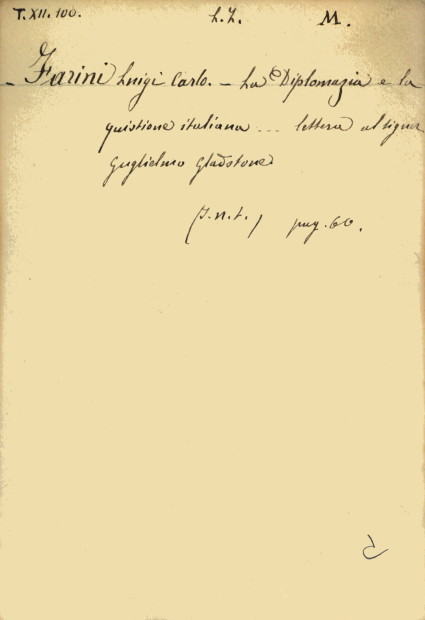 T. XII. 100. h.h. M.
- Farini Luigi Carlo. - La Diplomazia e la
quistione italiana ... lettera al signor
Guglielmo Gladstone
(S.n.t.) pag. 60.